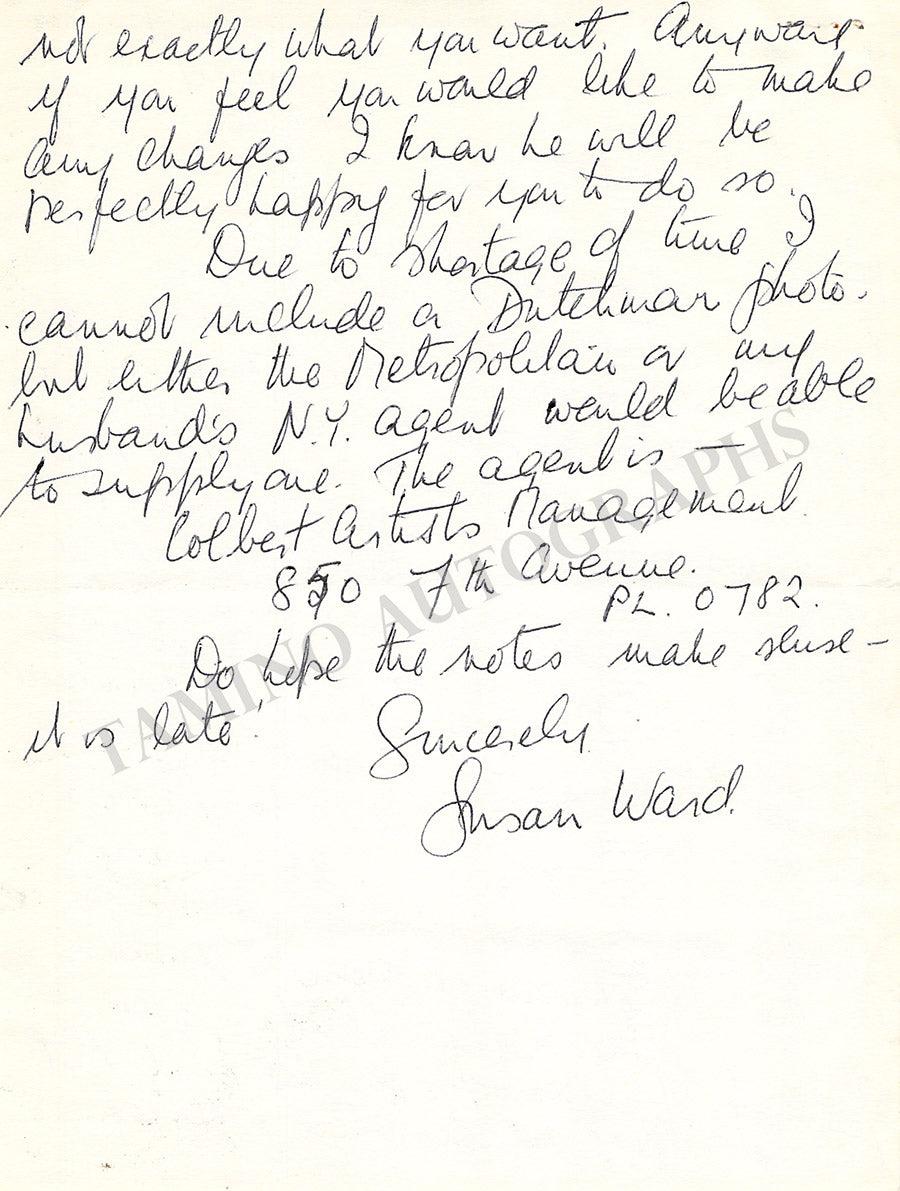 not exactly what you want. Anyway
if you feel you would like to make
any changes I know he will be
perfectly happy for you to do so.
Due to shortage of time I
cannot include a Dutchman photo.
but either the Metropolitain or my
husband's N.Y. agent would be able
to supply one. The agent is —
Colbert Artists Management.
850 7th Avenue.
PL. 0782.
Do hope the notes make sense -
it is late!
Sincerely
Susan Ward.
TAMINO AUTOGRAPHS